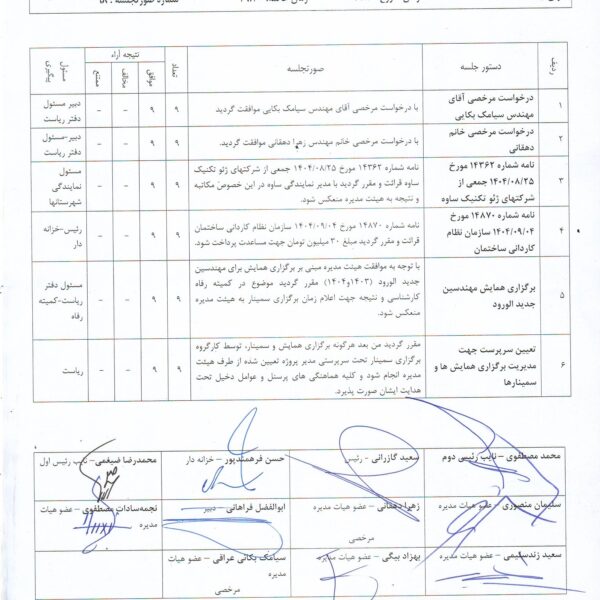 شماره صورتجلسه : ۵۹
ردیف
دستور جلسه
صورتجلسه
تعداد
نتیجه آراء
موافق
مخالف
ممتنع
مسئول پیگیری
۱
درخواست مرخصی آقای
مهندس سیامک بکایی
با درخواست مرخصی آقای مهندس سیامک بکایی موافقت گردید
۹
۹
–
–
دبیر مسئول
دفتر ریاست
۲
درخواست مرخصی خانم
دهقانی
با درخواست مرخصی خانم مهندس زهرا دهقانی موافقت گردید.
۹
۹
–
–
دبیر-مسئول
دفتر ریاست
۳
نامه شماره ۱۴۳۶۲ مورخ
۱۴۰۴/۰۸/۲۵ جمعی از
شرکتهای ژئو تکنیک ساوه
نامه شماره ۱۴۳۶۲ مورخ ۱۴۰۴/۰۸/۲۵ جمعی از شرکتهای ژئو تکنیک
ساوه قرائت و مقرر گردید با مدیر نمایندگی ساوه در این خصوص مکاتبه
و نتیجه به هیئت مدیره منعکس شود.
۹
۹
–
–
مسئول
نمایندگی
شهرستانها
۴
نامه شماره ۱۴۸۷۰ مورخ
۱۴۰۴/۰۹/۰۴ سازمان نظام
کاردانی ساختمان
نامه شماره ۱۴۸۷۰ مورخ ۱۴۰۴/۰۹/۰۴ سازمان نظام کاردانی ساختمان
قرائت و مقرر گردید مبلغ ۳۰ میلیون تومان جهت مساعدت پرداخت شود.
۹
۹
–
–
رئیس-خزانه
دار
۵
برگزاری همایش مهندسین
جدید الورود
با توجه به موافقت هیئت مدیره مبنی بر برگزاری همایش برای مهندسین
جدید الورود (۱۴۰۳و۱۴۰۴) مقرر گردید موضوع در کمیته رفاه
کارشناسی و نتیجه جهت اعلام زمان برگزاری سمینار به هیئت مدیره
منعکس شود.
۹
۹
–
–
مسئول دفتر
ریاست-کمیته
رفاه
۶
تعیین سرپرست جهت
مدیریت برگزاری همایش ها و
سمینارها
مقرر گردید من بعد هرگونه برگزاری همایش و سمینار، توسط کارگروه
برگزاری سمینار تحت سرپرستی مدیر پروژه تعیین شده از طرف هیئت
مدیره انجام شود و کلیه هماهنگی های پرسنل و عوامل دخیل تحت
هدایت ایشان صورت پذیرد.
۹
۹
–
–
ریاست
محمد مصطفوی – نایب رئیس دوم
سعید گازرانی - رئیس
حسن فرهمندپور – خزانه دار
محمدرضا ضیغمی – نایب رئیس اول
سلیمان منصوری – عضو هیات مدیره
زهرا دهقانی – عضو هیات مدیره
مرخصی
ابوالفضل فراهانی – دبیر
نجمه‌سادات مصطفوی – عضو هیات
مدیره
سعید زندسلیمی – عضو هیات مدیره
بهزاد بیگی – عضو هیات مدیره
سیامک بکائی عراقی – عضو هیات
مدیره
مرخصی